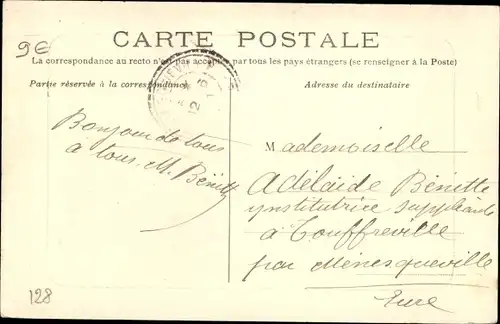 9E
CARTE POSTALE
La correspondance au recto n'est pas acceptée par tous les pays étrangers (se renseigner à la Poste)
Partie réservée à la correspondance
Adresse du destinataire
Bonjour de tous
à tous. M. Bénitte
Mademoiselle
Adélaïde Bénitte
ynstitutrice suppléante
à Touffreville
par Ménesqueville
Eure
128